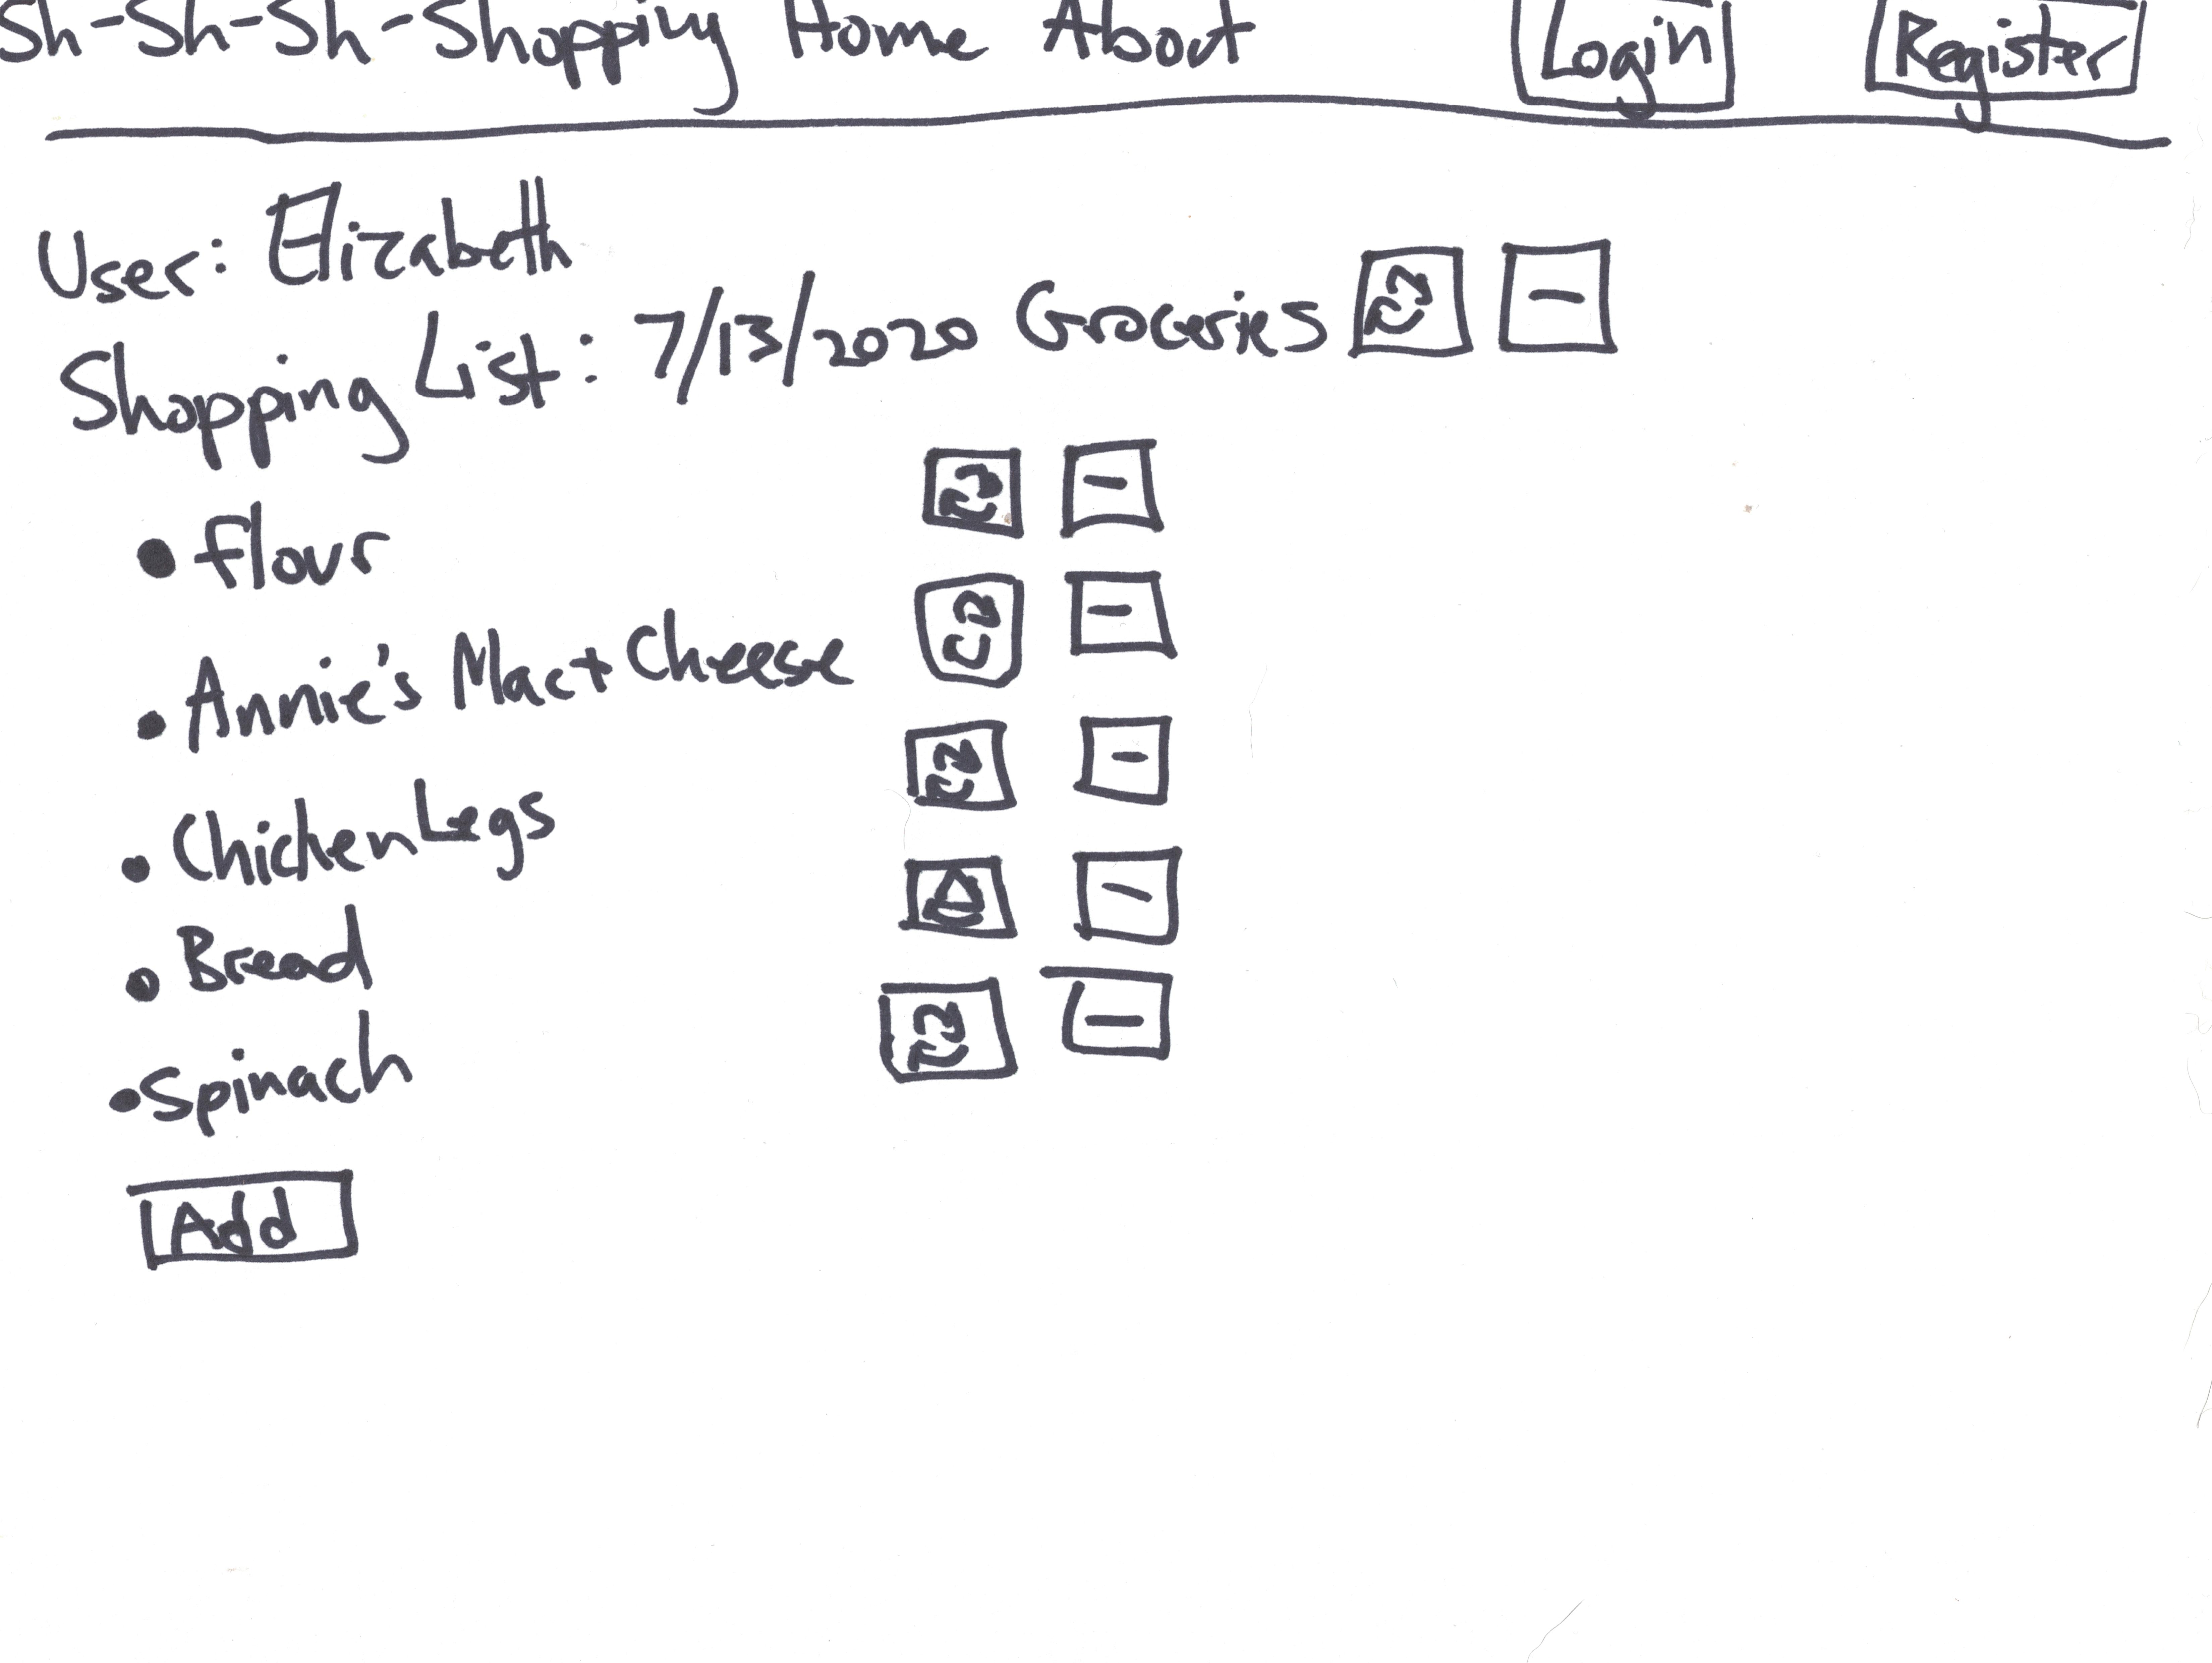 Sh-Sh-Sh-Shopping Home About Login Register
User: Elizabeth
Shopping List: 7/13/2020 Groceries
• flour
• Annie's Mac + Cheese
• Chicken Legs
• Bread
• Spinach
Add